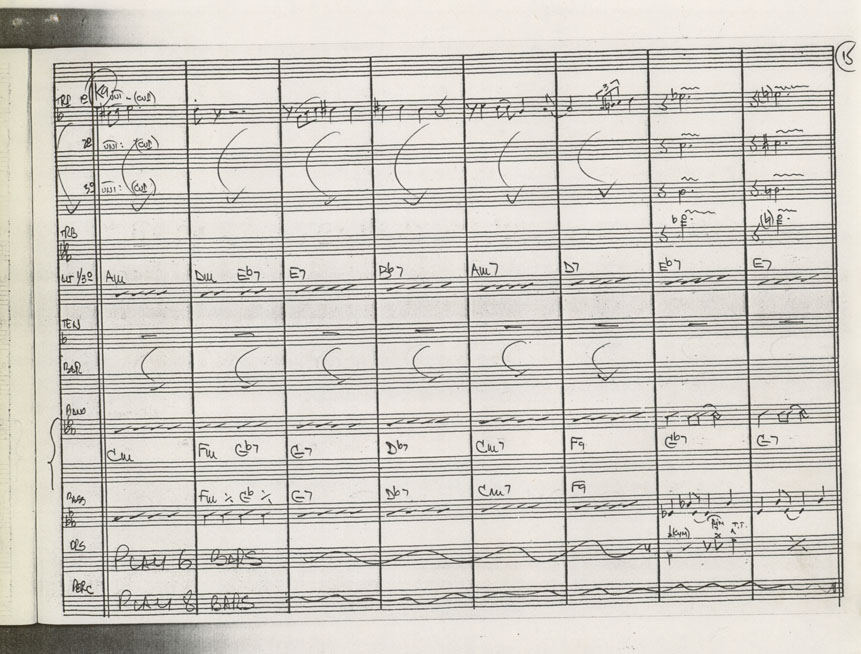 15
TRP 1º K9 UNI - (CUP)
2º UNI: (CUP)
3º UNI: (CUP)
TRB
Am Dm Eb7 E7 Bb7 Am7 D7 Eb7 E7
TEN
BAR
Cm Fm Gb7 G7 Db7 Cm7 F9 Gb7 G7
BASS Fm Gb G7 Db7 Cm7 F9
DRS PLAY 6 BARS
PERC PLAY 8 BARS